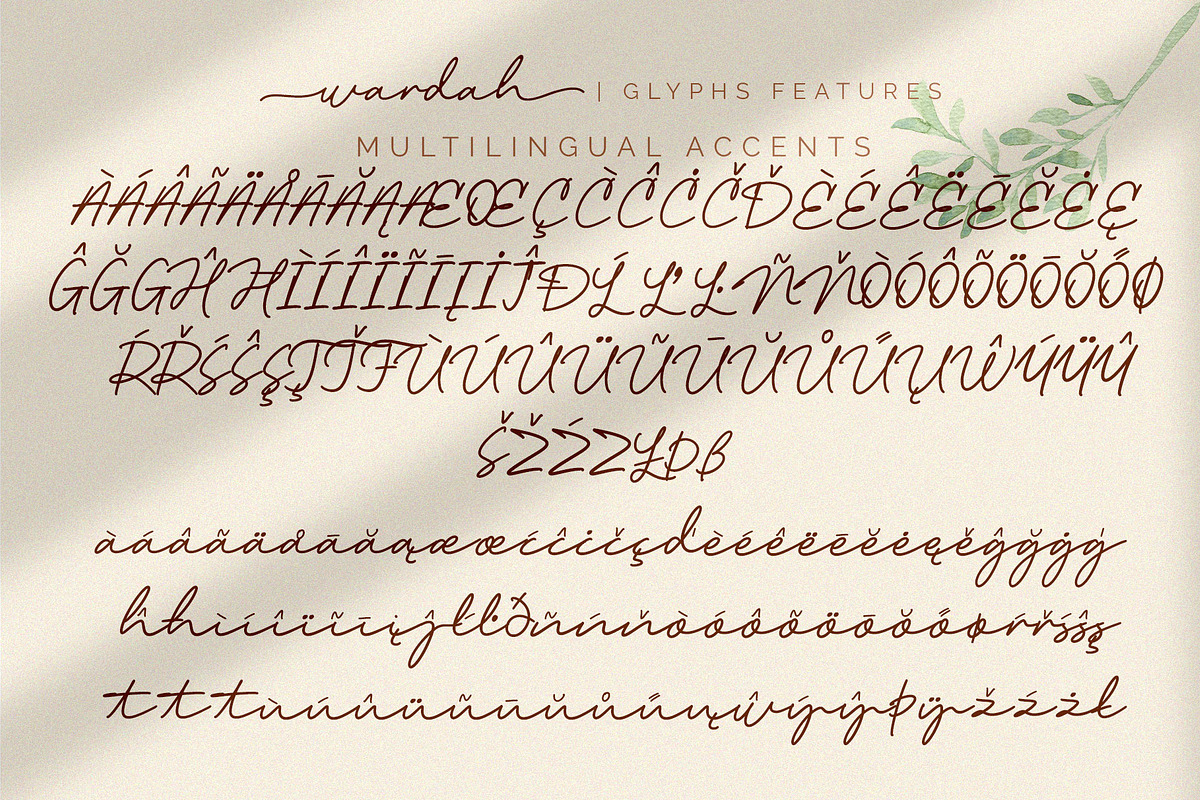 wardah | GLYPHS FEATURES
MULTILINGUAL ACCENTS
ÀÁÂÃÄÅĀĂĄÆŒÇÈĈĊČĐÈÉÊËĒĔĖĘ
ĜĞGĤĦÌÍÎÏĨĪĮİĴĐĹĽĿÑŇÒÓÔÕÖŌŎŐØ
ŔŘŚŜŞŢŤŦÙÚÛÜŨŪŬŮŰŲŴÝŸŶ
ŠŽŹZŁÞß
àáâãäåāăąæœćĉċčçďèéêëēĕėęěĝğġģ
ĥħìíîïĩīįĵłŀðñńňòóôõöōŏőøŕřśŝş
ttŧùúûüũūŭůűųŵýŷþÿžźżk